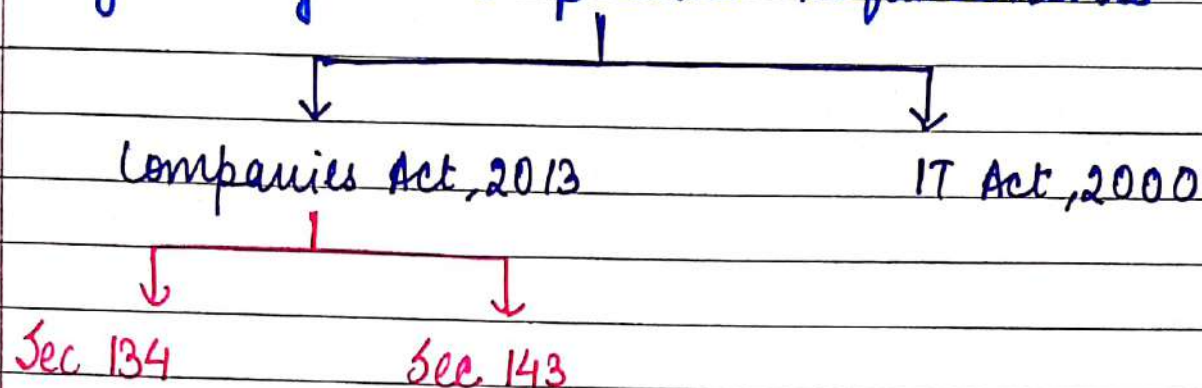 Companies Act, 2013 IT Act, 2000
Sec 134 Sec 143